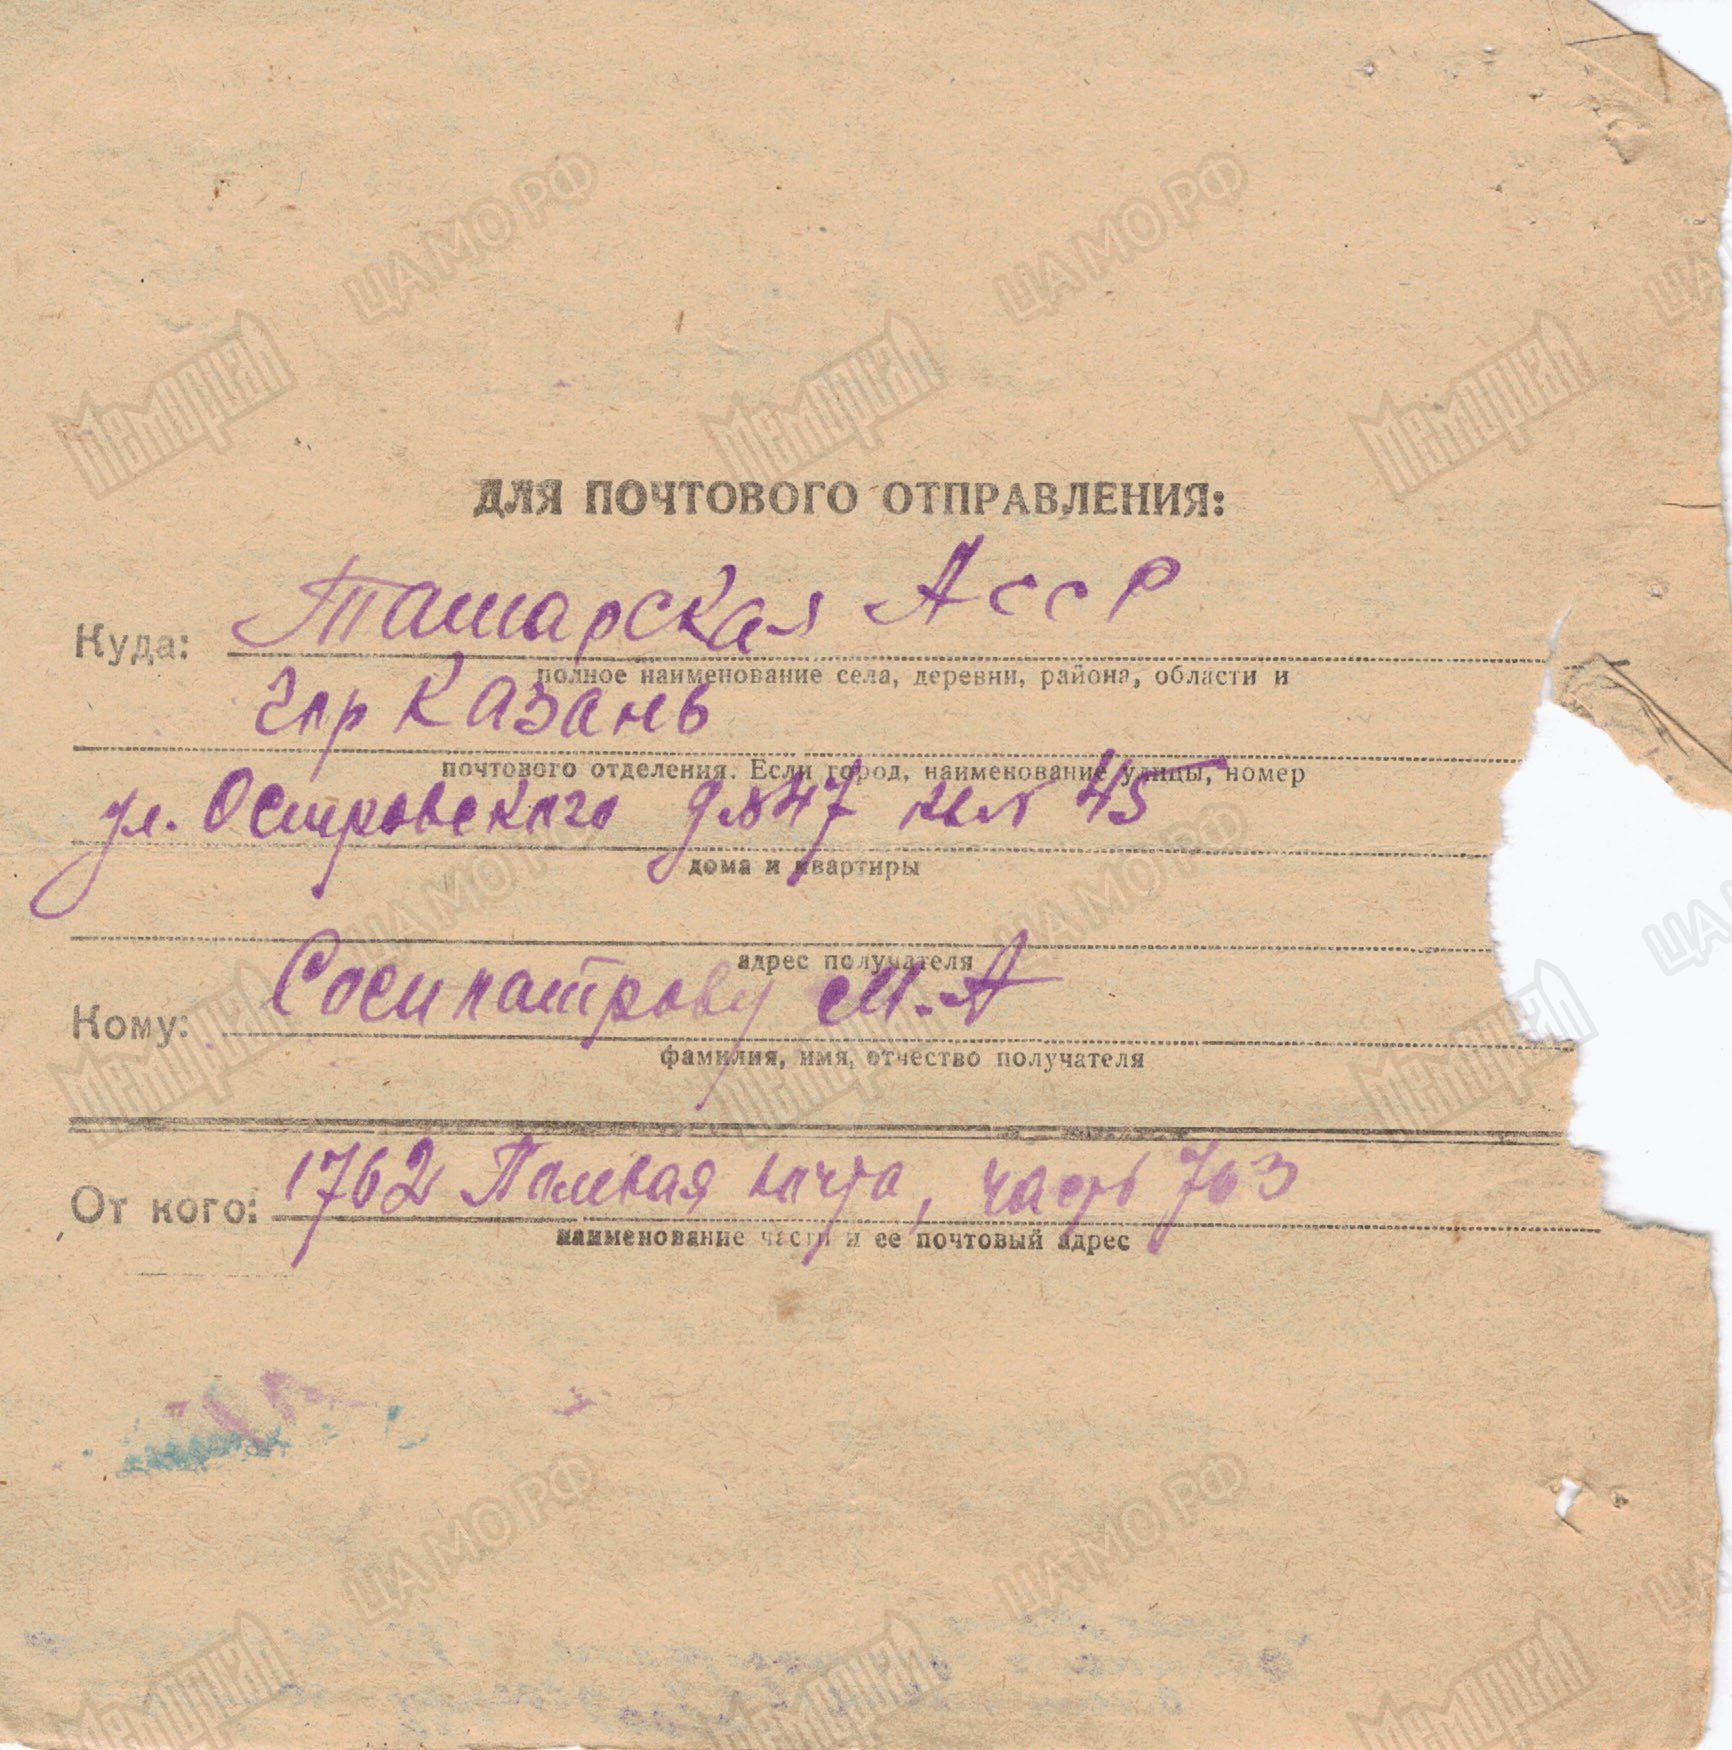 ДЛЯ ПОЧТОВОГО ОТПРАВЛЕНИЯ:
Куда: Татарская АССР
полное наименование села, деревни, района, области и
гор Казань
почтового отделения. Если город, наименование улицы, номер
ул. Островского д №47 кв 45
дома и квартиры
адрес получателя
Кому: Сосипатрову М.А
фамилия, имя, отчество получателя
От кого: 1762 Полевая почта, часть 703
наименование части и ее почтовый адрес
ЦАМО РФ
Мемориал